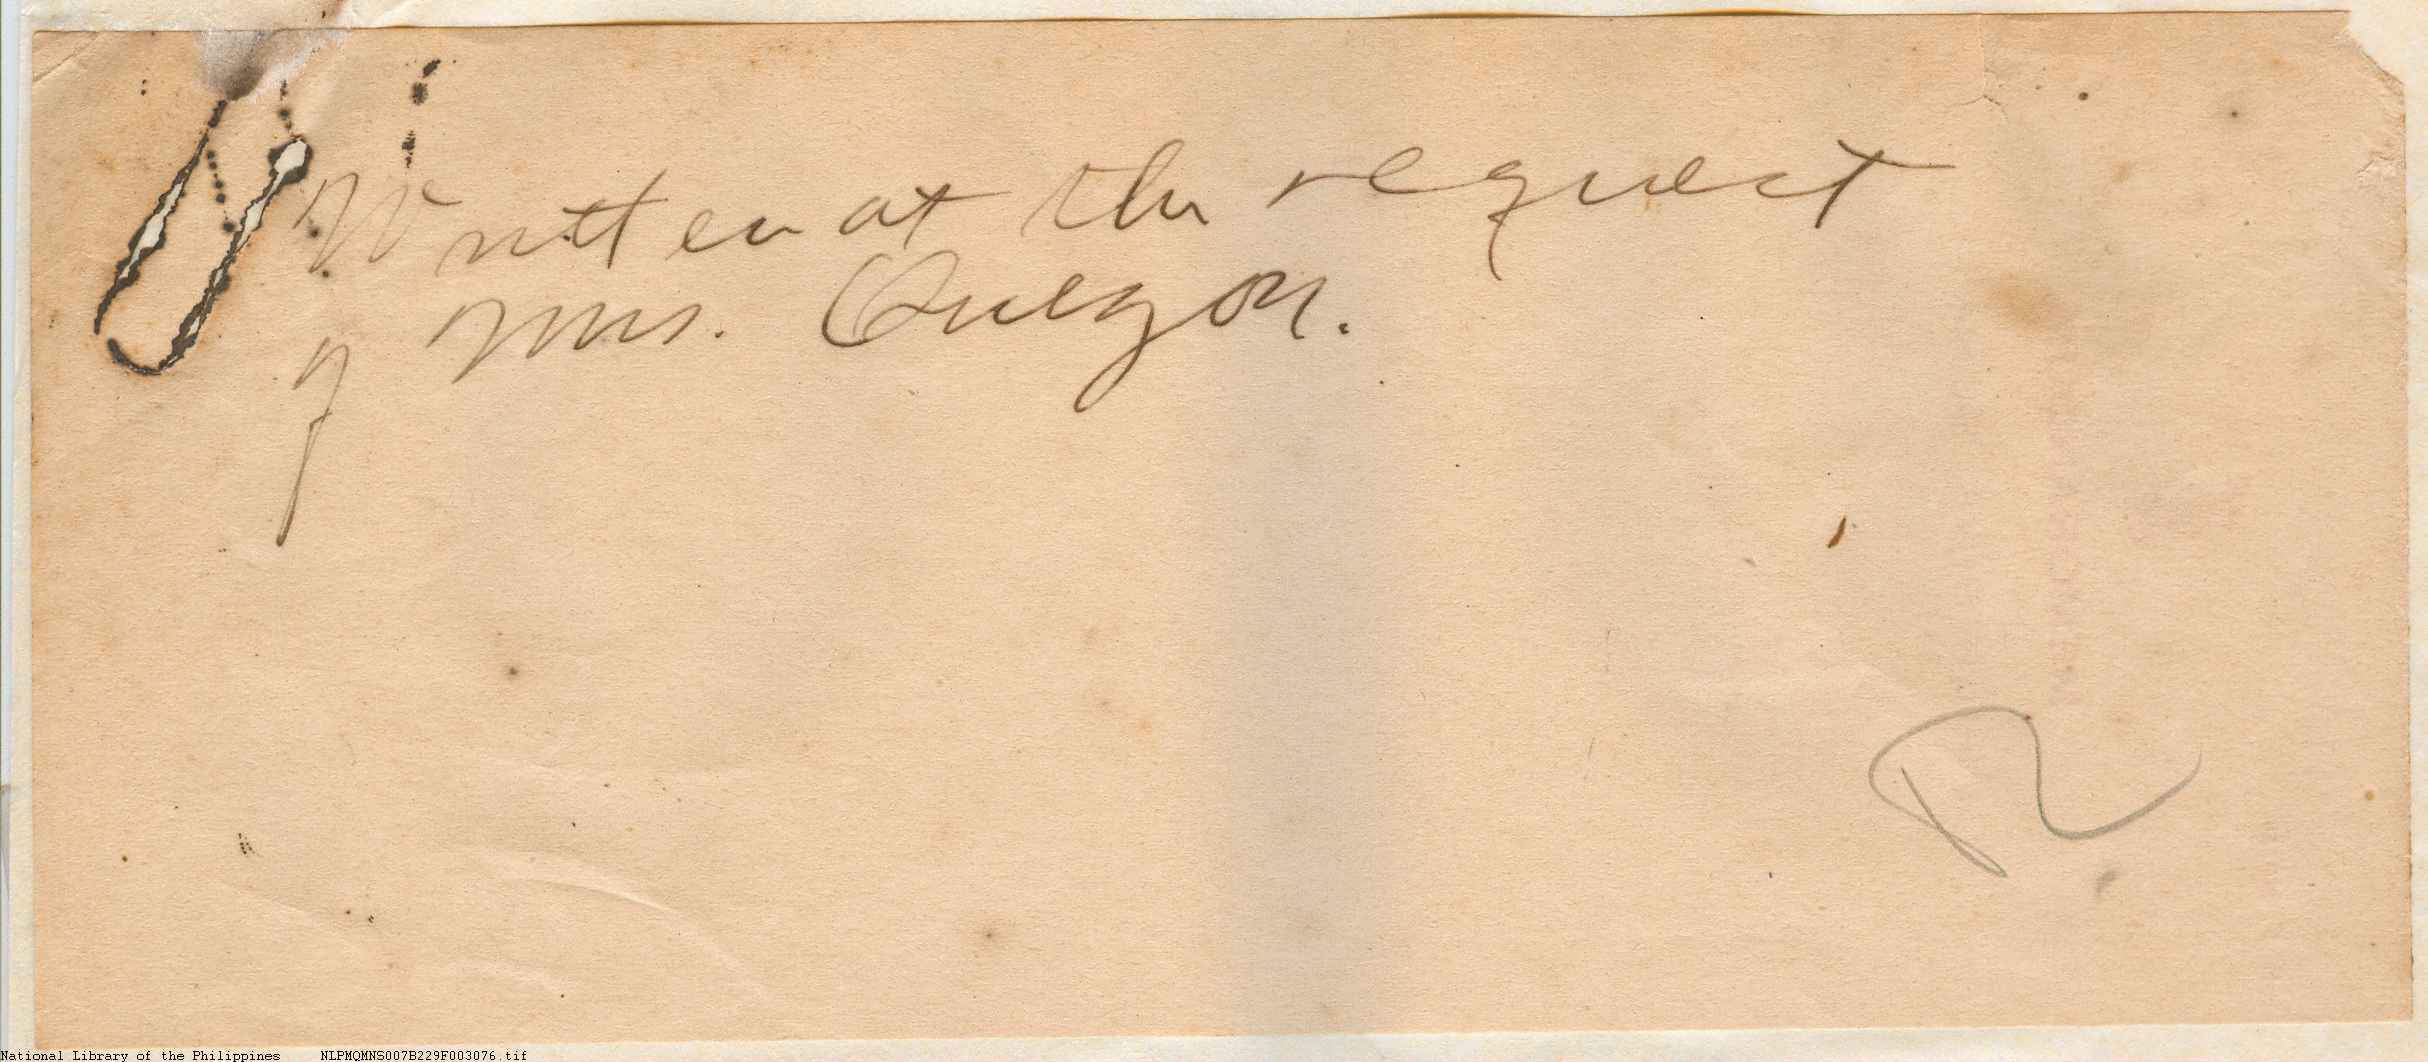 Written at the request
of Mrs. Quezon.
R
National Library of the Philippines NLPMQMNS007B229F003076.tif